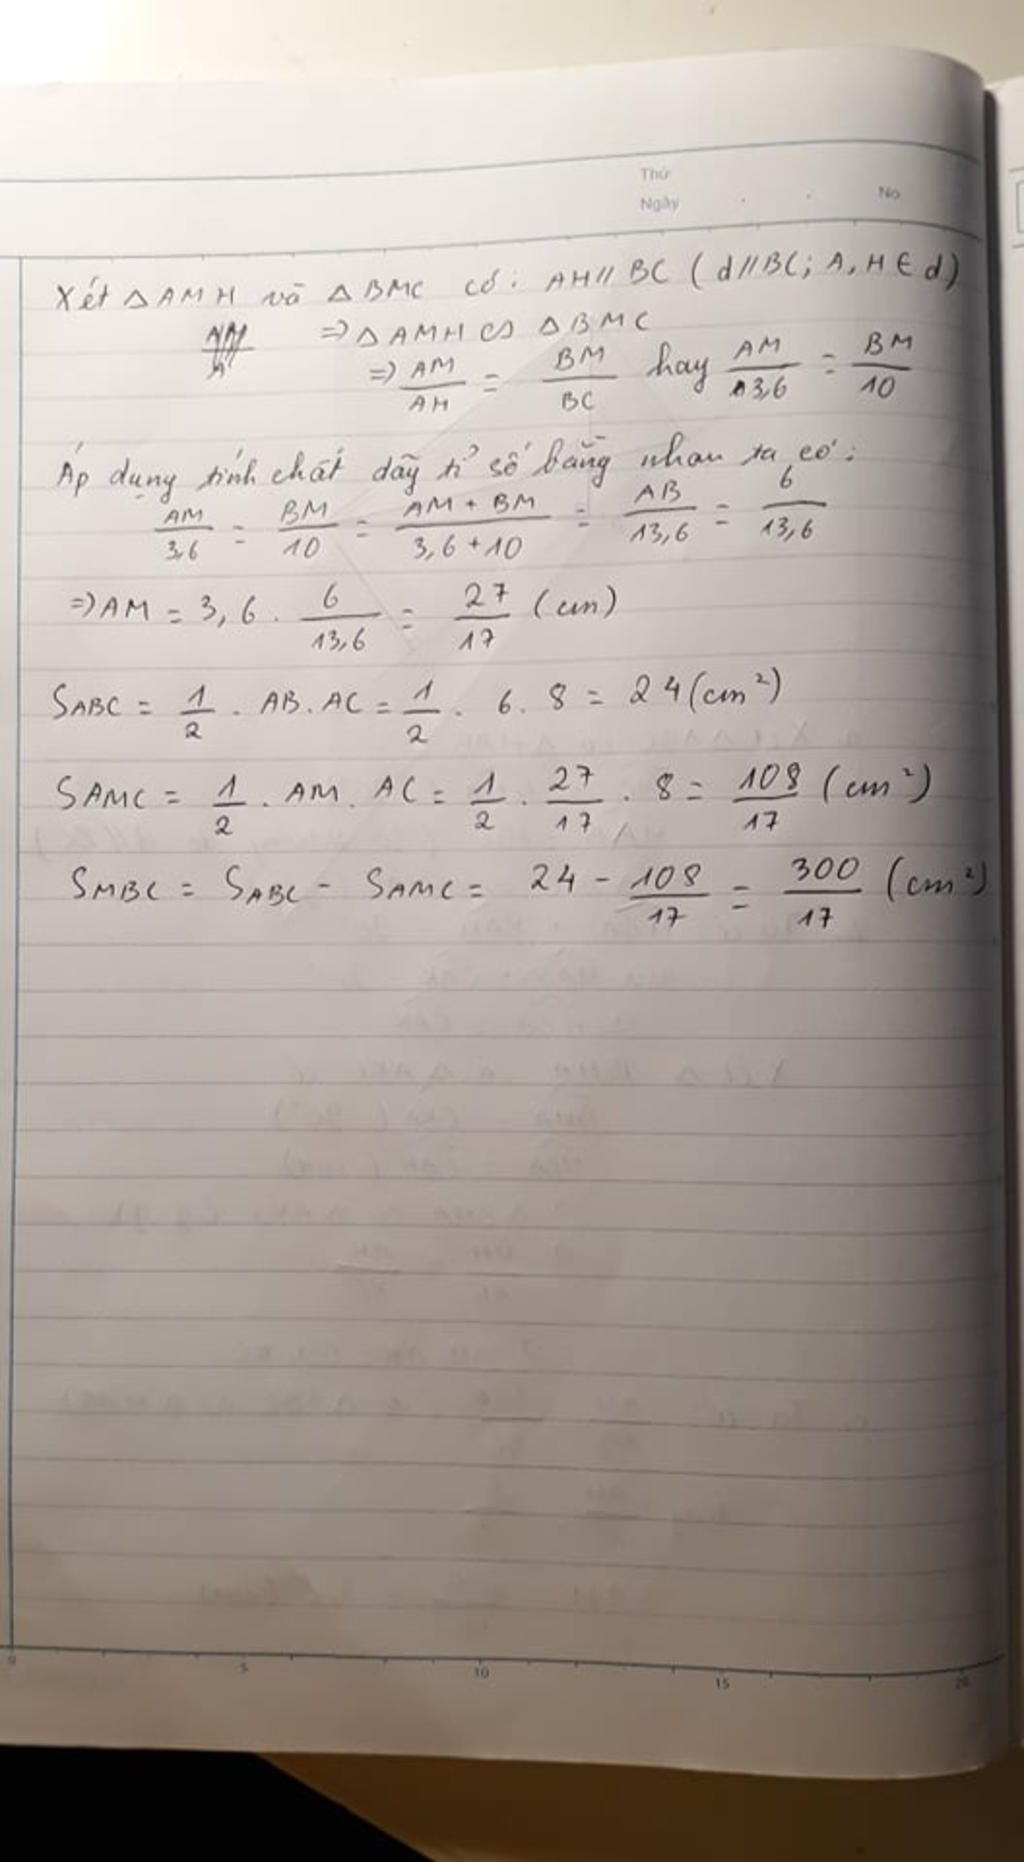 Thứ
Ngày No
Xét △AMH và △BMC có: AH // BC (d // BC; A, H ∈ d)
⇒ △AMH ∽ △BMC
⇒ AM/AH = BM/BC hay AM/3,6 = BM/10
Áp dụng tính chất dãy tỉ số bằng nhau ta có:
AM/3,6 = BM/10 = (AM + BM)/(3,6 + 10) = AB/13,6 = 6/13,6
⇒ AM = 3,6 . 6/13,6 = 27/17 (cm)
SABC = 1/2 . AB . AC = 1/2 . 6 . 8 = 24 (cm²)
SAMC = 1/2 . AM . AC = 1/2 . 27/17 . 8 = 108/17 (cm²)
SMBC = SABC - SAMC = 24 - 108/17 = 300/17 (cm²)
0 5 10 15 20